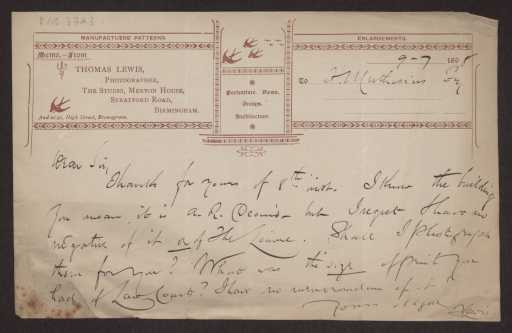 MANUFACTURERS' PATTERNS.
ENLARGEMENTS.
Memo. from
THOMAS LEWIS,
PHOTOGRAPHER,
THE STUDIO, MERTON HOUSE,
STRATFORD ROAD,
BIRMINGHAM.
And at 91, High Street, Birmingham.
Portraiture. Views.
Groups.
Architecture.
9-7 1898
TO H Muthesius Esq
Dear Sir,
Thanks for yours of 8th inst. I know the building
you mean it is a but I regret I have no
negative of it or of The Shall I photograph
them for you? What was the size of print you
had of Law Courts? I have no memorandum of it
Yours
Lewis